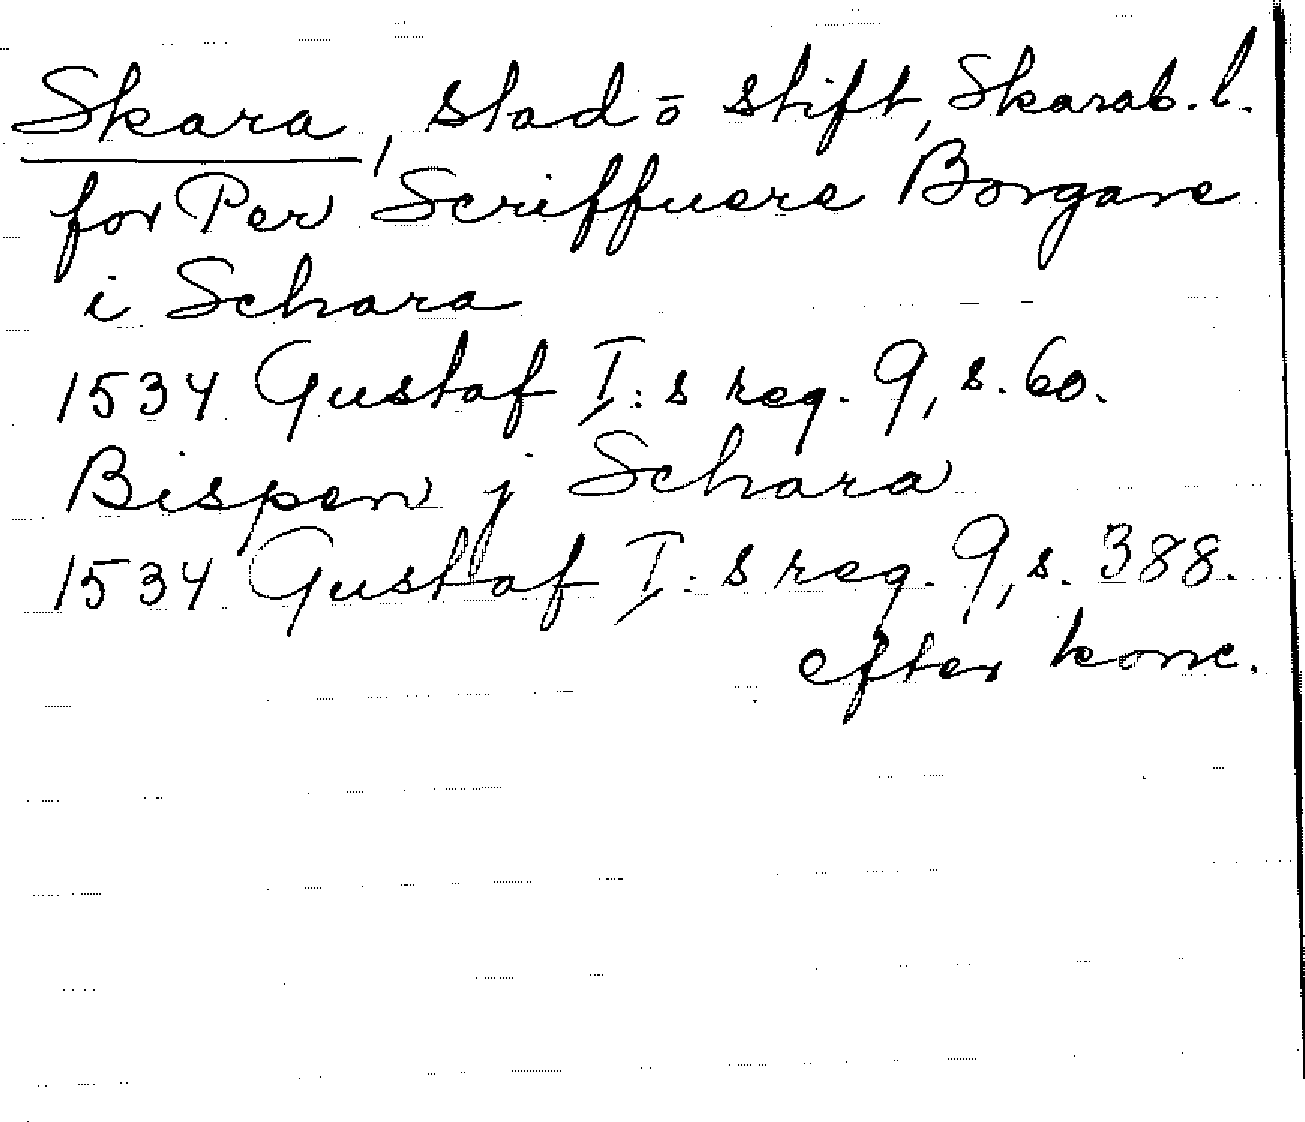 Skara, stad ō stift, Skarab. l.
för Per Scriffuere Borgare
i Schara
1534 Gustaf I:s reg. 9, s. 60.
Bispen j Schara
1534 Gustaf I:s reg. 9, s. 388.
efter konc.